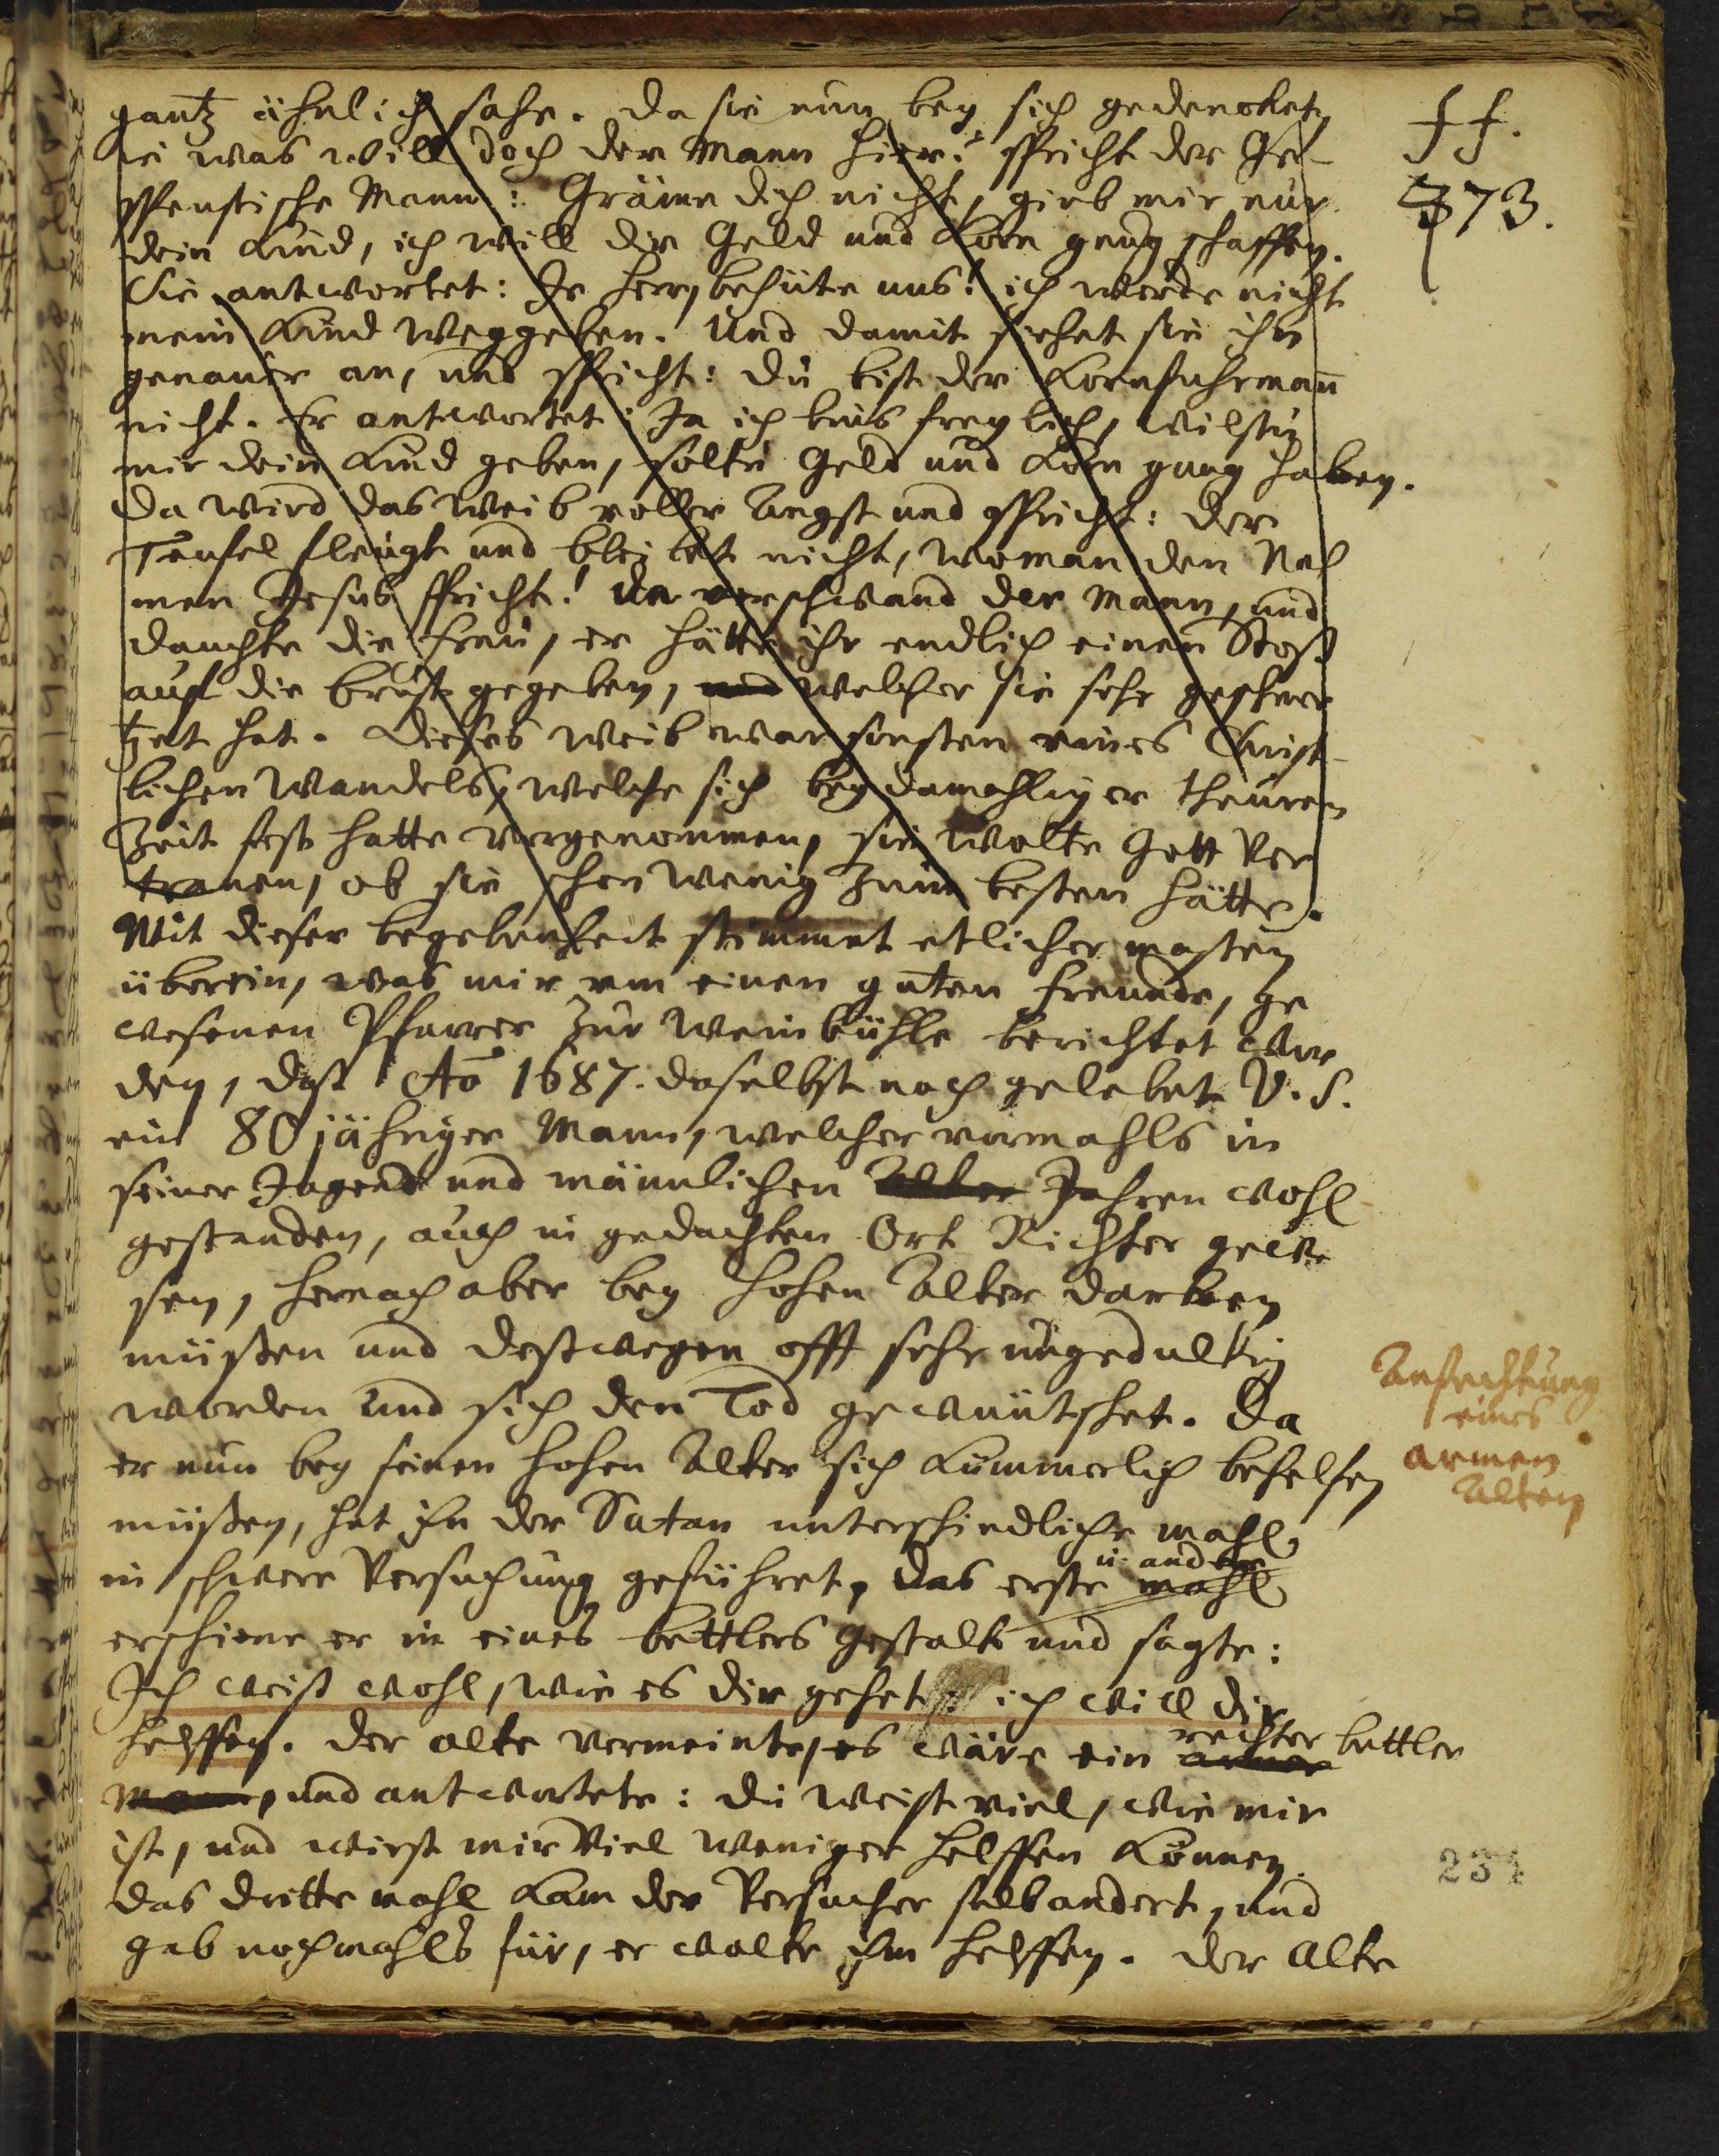 gantz ähnlich sahe. Da sie nun bey sich gedencket,
ie was will doch der Mann hier? spricht der Ge-
spenstische Mann: Gräme dich nicht, gieb mir nur
dein Kind, ich will dir Geld und Korn gnug schaffen.
Sie antwortet: Je Herr, behüte uns! ich werde nicht
mein Kind weggeben. Und damit siehet sie ihn
genauer an, und spricht: du bist der Kornfuhrmañ
nicht. Er antwortet: Ja ich bins freylich, wilstu
mir dein Kind geben, soltu Geld und Korn gnug haben.
Da wird das Weib voller Angst und spricht: der
Teufel fleugt und bleibet nicht, wo man den Nah
men Jesus spricht! Da verschwand der Mann, und
dauchte die Frau, er hätte ihr endlich einen Stoß
auf die Brust gegeben, und welcher sie sehr geschmer
tzet hat. Dieses Weib war sonsten eines Christ-
lichen Wandels, welche sich bey damahliger theuren
Zeit fest hatte vorgenommen, sie wolte Gott ver
trauen, ob sie schon wenig zum besten hätte.
Mit dieser begebenheit stimmet etlicher masten
überein, was mir von einen guten Freunde, ge
wesenen Pfarrer zur Weinbühle berichtet wor
den, dast Aõ 1687. daselbst noch gelebet V. S.
ein 80 jähriger Mann, welcher vormahls in
seiner Jugend und männlichen Alter Jahren wohl
gestanden, auch in gedachten Ort Richter gewe
sen, hernach aber bey hohen Alter darben
müßen und destwegen offt sehr ungedultig
worden und sich den Tod gewüntschet. Da
er nun bey seinen hohen Alter sich kümmerlich behelfen
müßen, hat ihn der Satan unterschiedliche mahl
ü. andere
in schwere Versuchung geführet, das erste mahl
erschiene er in eines bettlers gestalt und sagte:
Ich weist wohl, wie es dir gehet, ich will dir
helffen. Der alte vermeinte, es wäre ein armer rechter bettler
Mann, und antwortete: du weist viel, wie mir
ist, und wirst mir viel weniger helffen können.
das dritte mahl kam der Versucher selbandert, und
gab nochmahls für, er wolte ihm helffen. Der Alte
ff.
373.
Anfechtung
eines
armen
Alten
234